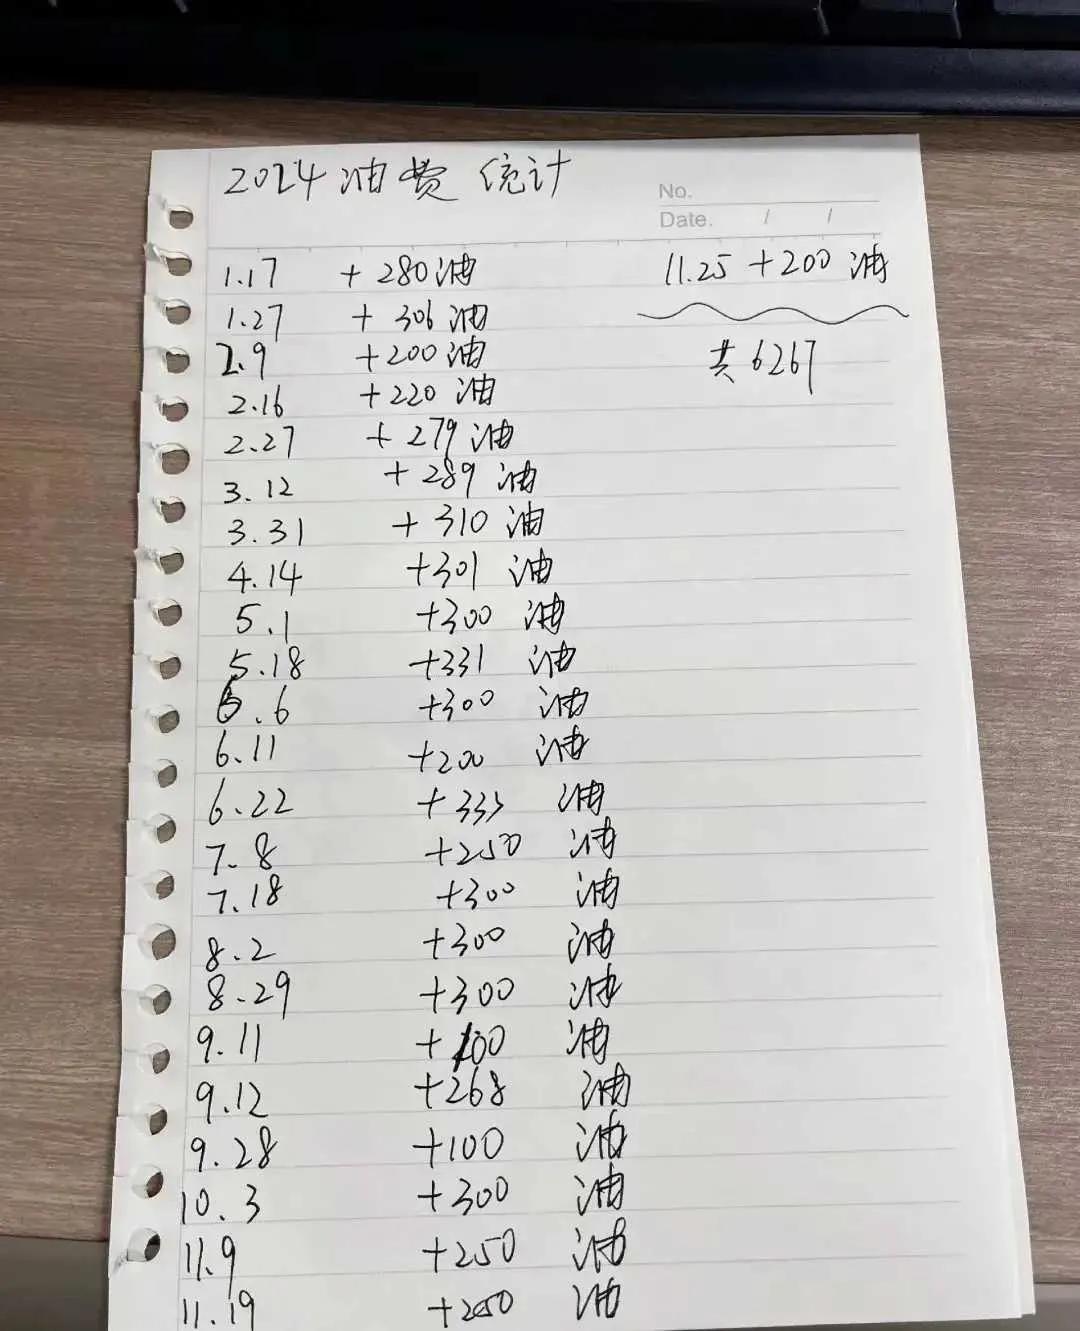 2024油费统计
No.
Date. / /
1.17 +280油
1.27 +306油
2.9 +200油
2.16 +220油
2.27 +279油
3.12 +289油
3.31 +310油
4.14 +301油
5.1 +300油
5.18 +331油
6.6 +300油
6.11 +200油
6.22 +333油
7.8 +250油
7.18 +300油
8.2 +300油
8.29 +300油
9.11 +100油
9.12 +268油
9.28 +100油
10.3 +300油
11.9 +250油
11.19 +250油
11.25 +200油
共6267